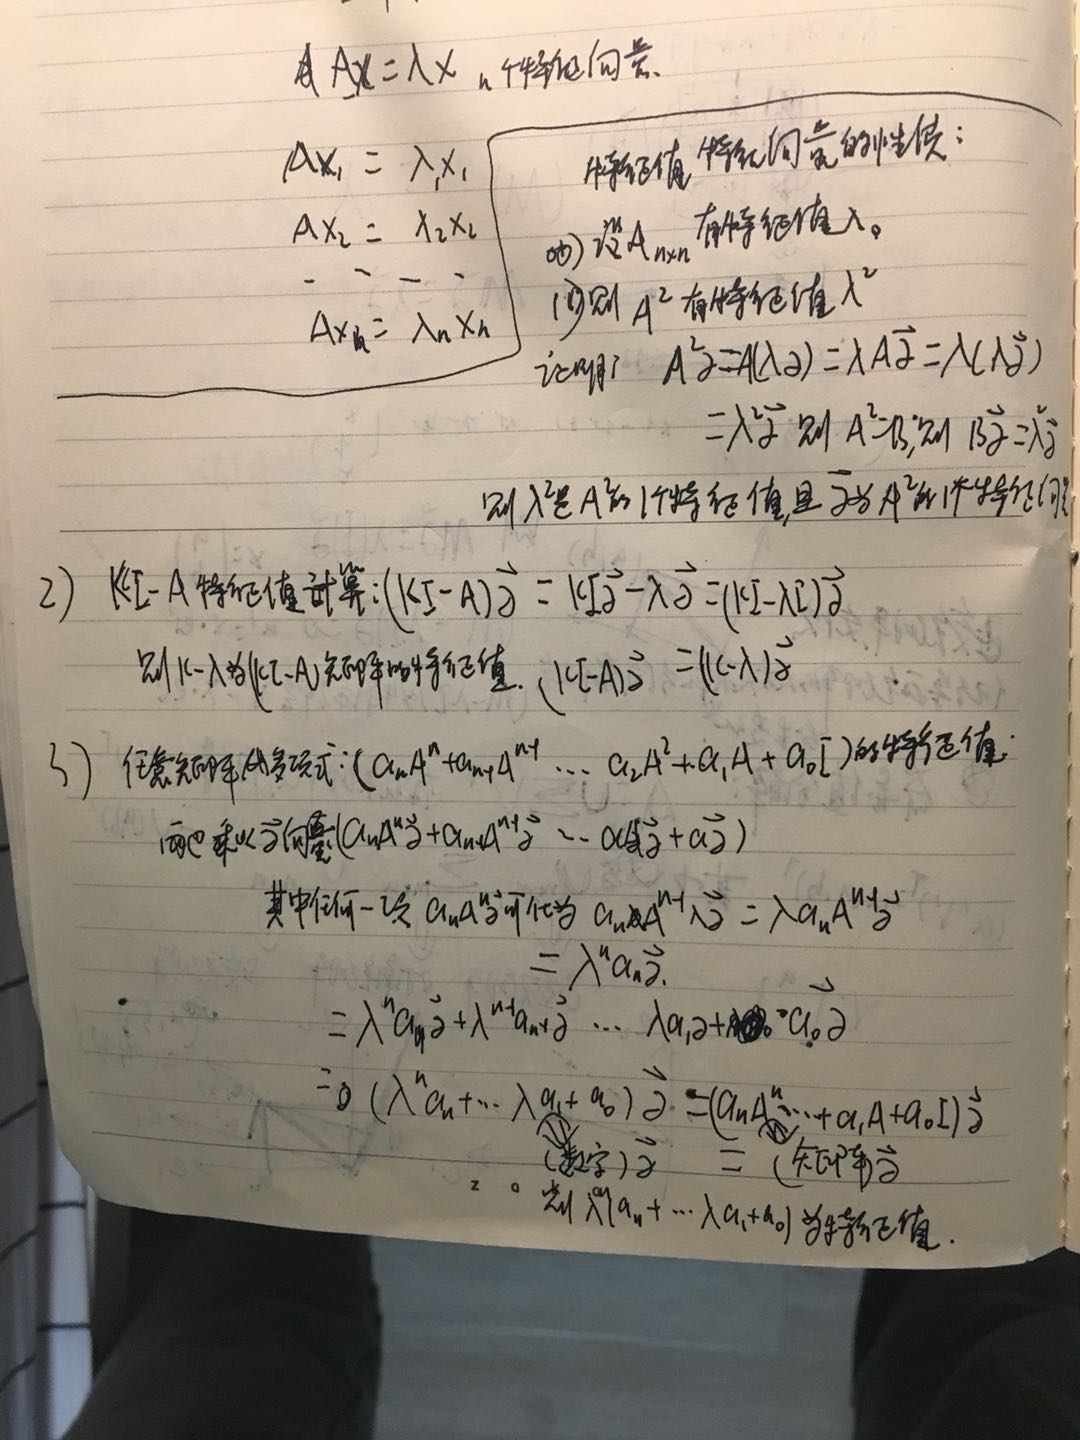 Ax = λx n个特征向量.
Ax₁ = λ₁x₁
Ax₂ = λ₂x₂
- - - -
Axₙ = λₙxₙ
特征值 特征向量的性质:
设Aₙₓₙ有特征值λ。
(1)则 A²有特征值λ²
证明: A²α⃗=A(λα)=λAα⃗=λ(λα⃗)
=λ²α⃗ 则 A²=B,则 Bα⃗=λ²α⃗
则 λ²是A²的1个特征值,且α⃗为A²的1个特征向
2) KI-A特征值计算:(KI-A)α⃗ = KIα⃗-λα⃗=(KI-λI)α⃗
则K-λ为(KI-A)矩阵的特征值. (KI-A)α⃗ =(K-λ)α⃗
3) 任意矩阵A多项式:(aₙAⁿ+aₙ₋₁Aⁿ⁻¹ ... a₂A²+a₁A+a₀I)的特征值:
两边乘以α⃗向量(aₙAⁿα⃗+aₙ₋₁Aⁿ⁻¹α⃗ ... α⃗+aα⃗)
其中任何一次 aₙAⁿα⃗可化为 aₙAⁿ⁻¹λα⃗ = λaₙAⁿ⁻¹α⃗
= λⁿaₙα⃗.
= λⁿaₙα⃗+λⁿ⁻¹aₙ₋₁α⃗ ... λa₁α+a₀α⃗
(λⁿaₙ+... λa₁+a₀)α⃗ =(aₙAⁿ...+a₁A+a₀I)α⃗
(数字)α⃗ = (矩阵)α⃗
则 λⁿ(aₙ+... λa₁+a₀)为特征值.